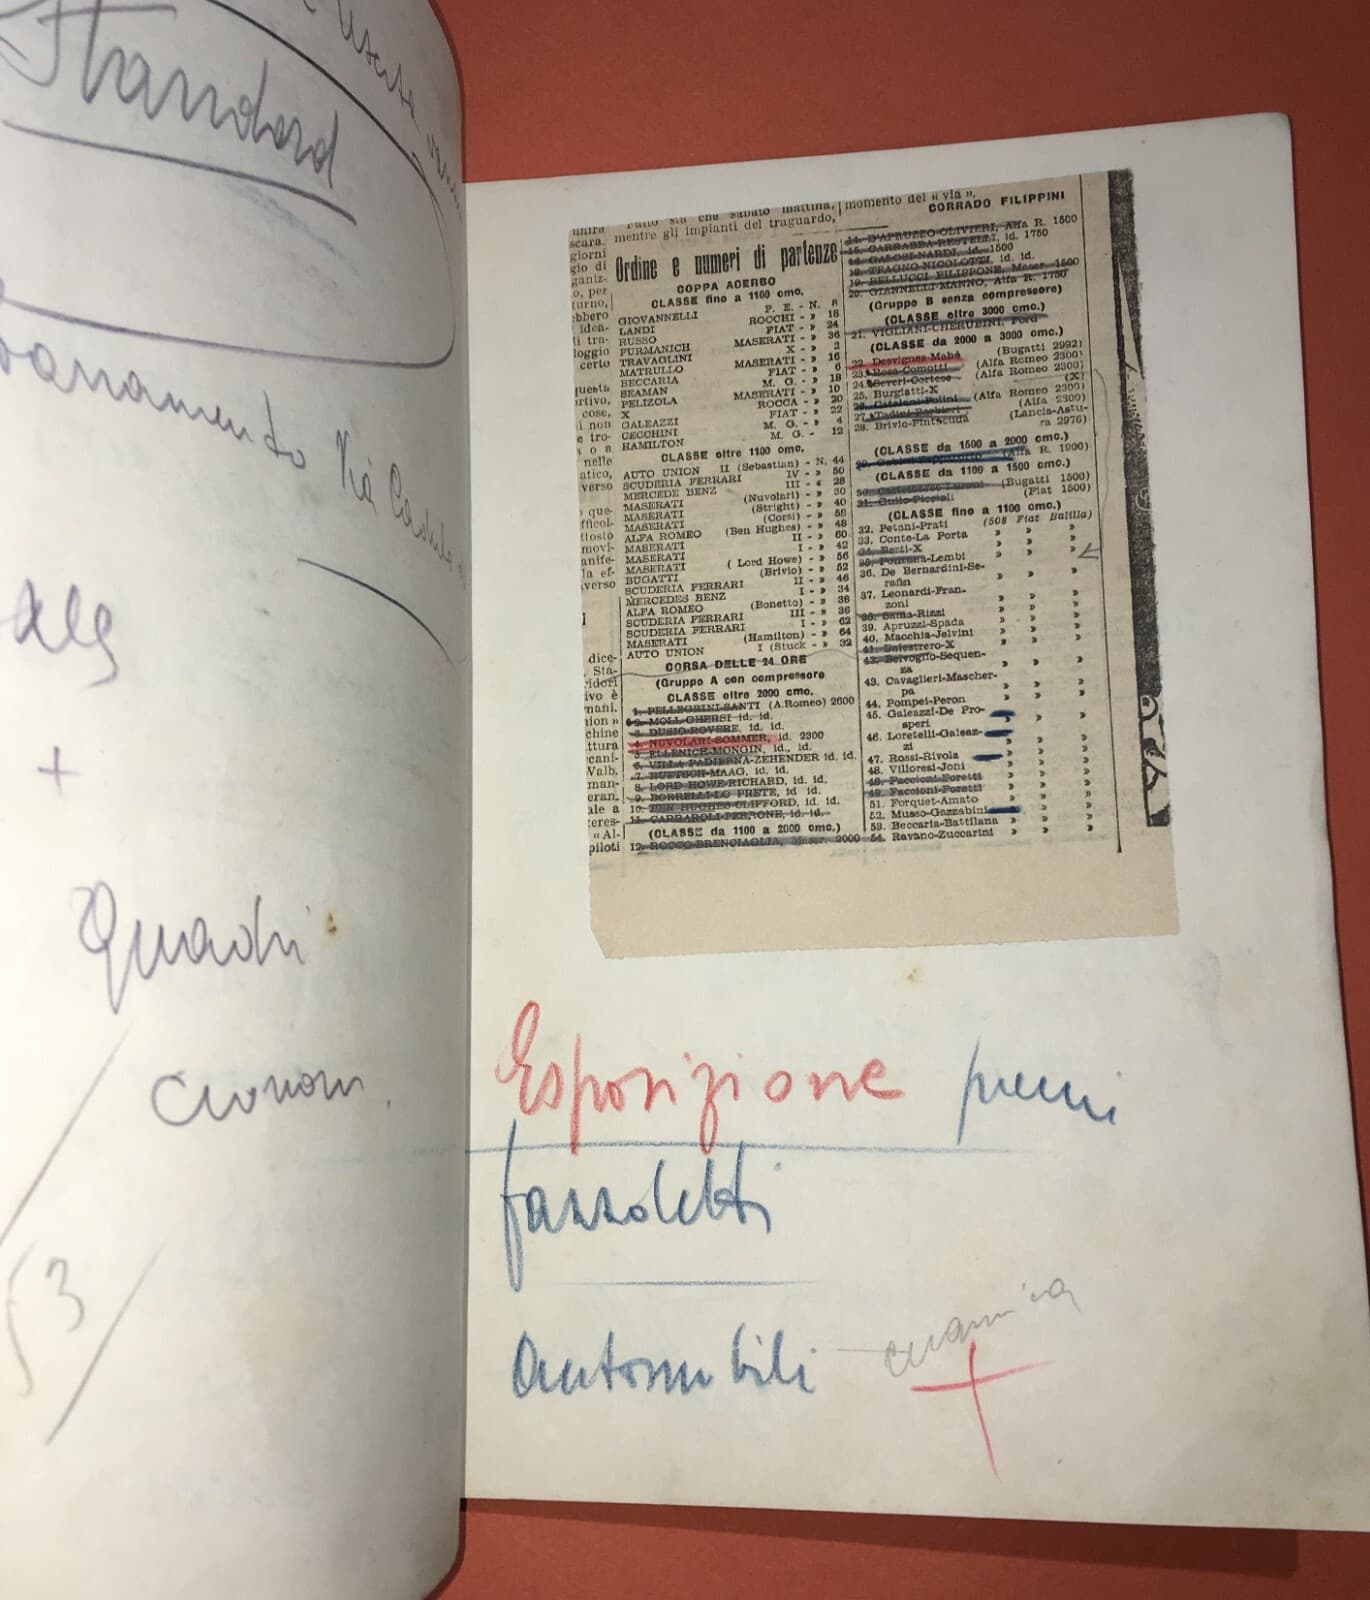 Standard
Via
+
Quadri
53
unire
scara.
giorni
gio di
ganiz-
o, per
turno,
bbero
idea-
li tra-
loggio
certo
questa
ortivo,
cose,
i non
e tro-
o a
nelle
atico,
verso
que-
fficol-
ttosto
movi-
anife-
la ef-
verso
dice-
Sta-
ridori
ivo è
mani.
nion »
chine
ttura
cani-
Valb,
man-
eran.
ale a
teres-
« Al-
piloti
Fatto sta che sabato mattina,
mentre gli impianti del traguardo,
Ordine e numeri di partenze
COPPA ACERBO
CLASSE fino a 1100 cmc.
GIOVANNELLI P. E. - N. 8
LANDI ROCCHI - » 18
RUSSO FIAT - » 24
FURMANICH MASERATI - » 36
TRAVAGLINI X - » 2
MATRULLO MASERATI - » 16
BECCARIA FIAT - » 6
SEAMAN M. G. - » 18
PELIZOLA MASERATI - » 10
X ROCCA - » 20
GALEAZZI FIAT - » 22
CECCHINI M. G. - » 4
HAMILTON M. G. - 12
CLASSE oltre 1100 cmc.
AUTO UNION II (Sebastian) - N. 44
SCUDERIA FERRARI IV - » 50
MERCEDE BENZ III - « 28
MASERATI (Nuvolari) - » 30
MASERATI (Stright) - » 40
MASERATI (Corsi) - » 58
ALFA ROMEO (Ben Hughes) - » 48
MASERATI II - » 60
MASERATI I - » 42
MASERATI ( Lord Howe) - » 56
BUGATTI (Brivio) - » 52
SCUDERIA FERRARI II - » 46
MERCEDES BENZ I - » 34
ALFA ROMEO (Bonetto) - » 38
SCUDERIA FERRARI III - » 36
SCUDERIA FERRARI I - » 62
MASERATI (Hamilton) - » 64
AUTO UNION I (Stuck - » 32
CORSA DELLE 24 ORE
(Gruppo A con compressore
CLASSE oltre 2000 cmc.
1. PELLEGRINI-SANTI (A.Romeo) 2600
2. MOLL-GHERSI id. id.
3. DUSIO-ROVERE, id. id.
4. NUVOLARI-SOMMER, id. 2300
5. ELLENICH-MONGIN, id., id.
6. VILLA PADIERNA-ZEHENDER id. id.
7. RUETSCH-MAAG, id. id.
8. LORD HOWE-RICHARD, id. id.
9. BORRELLI-LO PRETE, id id.
10. BEN HUGHES-CLIFFORD, id. id.
11. CARRAROLI-PERRONE, id. id.
(CLASSE da 1100 a 2000 cmc.)
12. ROCCO-BRENCIAGLIA, Maser. 2000
momento del « via ».
CORRADO FILIPPINI
14. D'APRUZZO-OLIVIERI, Alfa R. 1500
15. GARRABBA-RESTELLI, id. 1750
16. GALOSI-NARDI, id. 1500
18. TRAGNO-NICOLOTTI, id. id.
19. BELLUCCI FILIPPONE, Maser. 1500
20. GIANNELLI-MANNO, Alfa R. 1750
(Gruppo B senza compressore)
(CLASSE oltre 3000 cmc.)
21. VIGLIANI-CHERUBINI, Ford
(CLASSE da 2000 a 3000 cmc.)
22. Desvignes-Mahè (Bugatti 2992)
23. Rosa-Comotti (Alfa Romeo 2300)
24. Severi-Cortese (Alfa Romeo 2300)
25. Burgiatti-X (X)
26. Catalani-Polini (Alfa Romeo 2300)
27. Tadini-Barbieri (Alfa 2300)
28. Brivio-Pintacuda (Lancia-Astura 2976)
(CLASSE da 1500 a 2000 cmc.)
(CLASSE da 1100 a 1500 cmc.)
30. (Bugatti 1500)
31. Gullo-Piccioli (Fiat 1500)
(CLASSE fino a 1100 cmc.)
32. Petani-Prati (508 Fiat Balilla)
33. Conte-La Porta » » »
34. Berti-X » » »
35. Fontana-Lembi » » »
36. De Bernardini-Se-
rafin » » »
37. Leonardi-Fran-
zoni » » »
38. Sama-Rizzi » » »
39. Apruzzi-Spada » » »
40. Macchia-Jelvini » » »
41. Balestrero-X » » »
42. Belvoglio-Sequen-
za » » »
43. Cavaglieri-Mascher-
pa » » »
44. Pompei-Peron » » »
45. Galeazzi-De Pro-
speri » »
46. Loretelli-Galeaz-
zi » »
47. Rossi-Rivola » »
48. Villoresi-Joni » » »
48. Faccioni-Foretti » » »
49. Faccioni-Foretti » » »
51. Forquet-Amato » » »
52. Musso-Gazzabini » »
53. Beccaria-Battilana » » »
54. Ravano-Zuccarini » » »
Esposizione premi
fazzoletti
automobili — ceramica